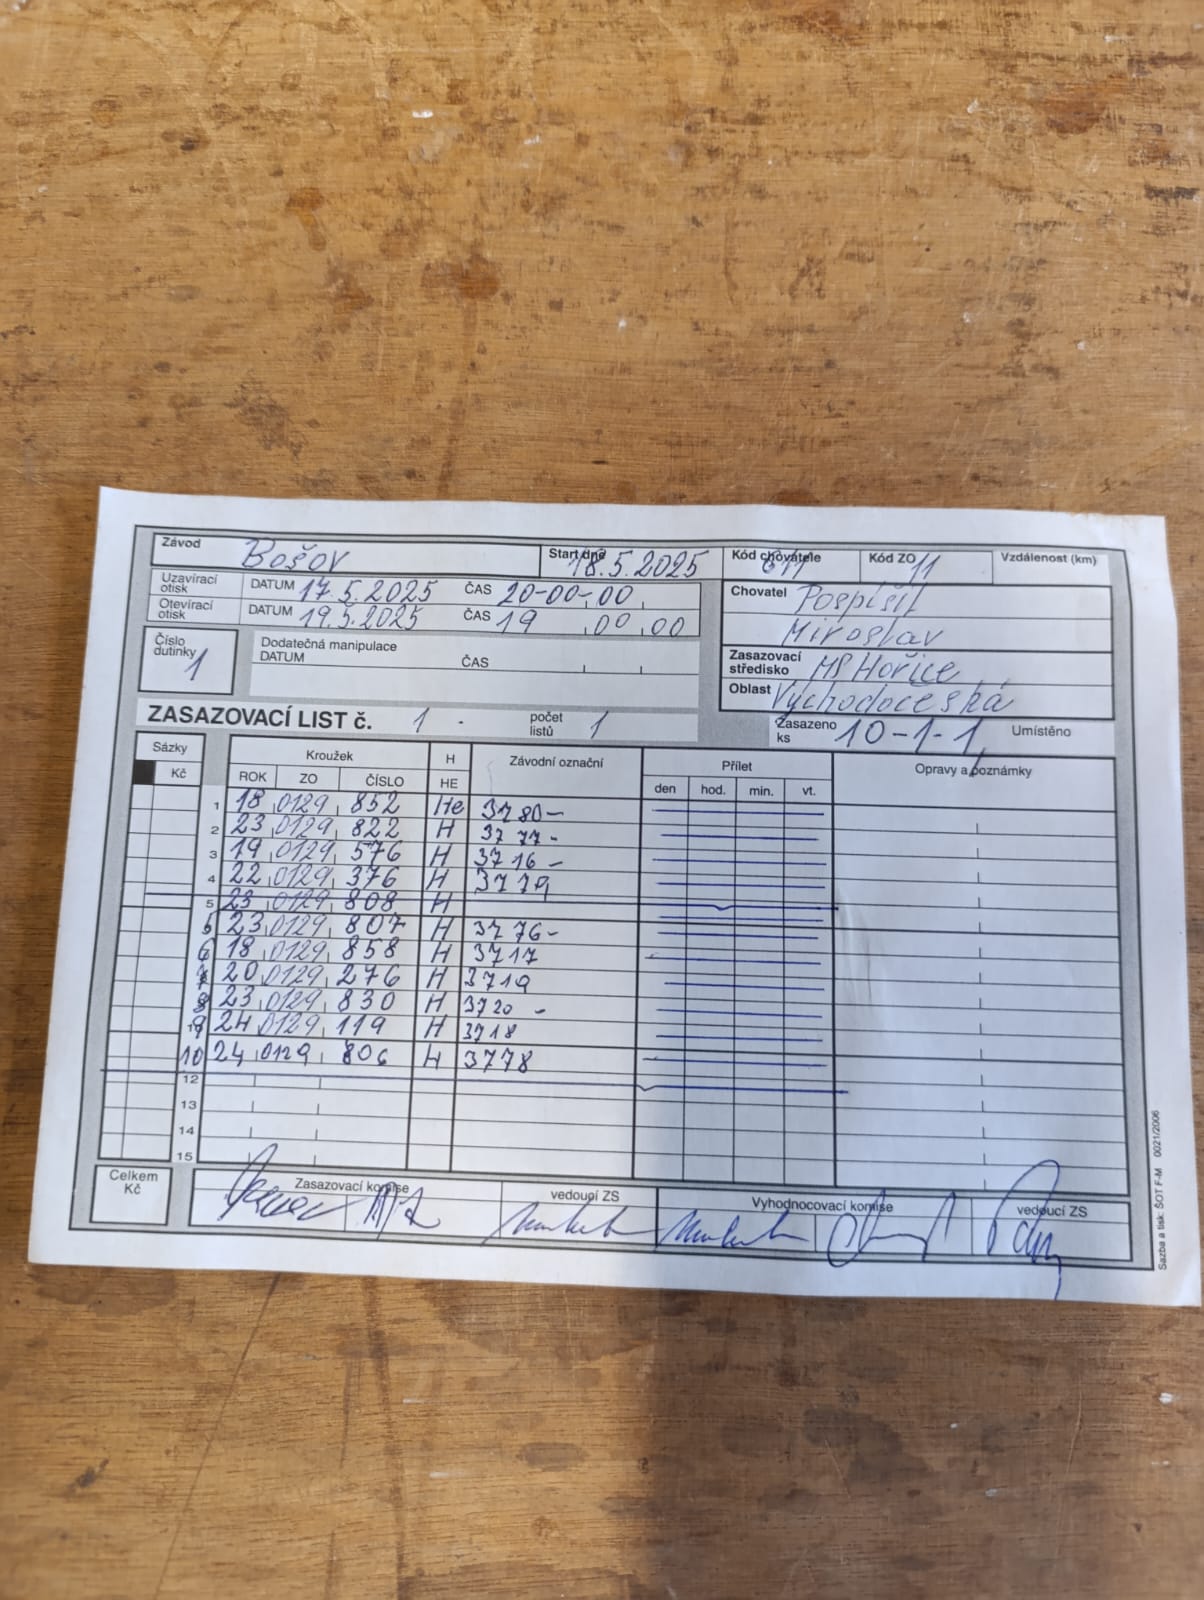 Závod Bošov Start dne 18.5.2025 Kód chovatele 611 Kód ZO 11 Vzdálenost (km)
Uzavírací otisk DATUM 17.5.2025 ČAS 20-00,00 Chovatel Pospíšil
Otevírací otisk DATUM 19.5.2025 ČAS 19,00,00 Miroslav
Číslo dutinky 1 Dodatečná manipulace DATUM ČAS Zasazovací středisko MS Hořice
Oblast Východočeská
ZASAZOVACÍ LIST č. 1 - počet listů 1 Zasazeno ks 10-1-1 Umístěno
Sázky Kroužek H Závodní označní Přílet Opravy a poznámky
Kč ROK ZO ČÍSLO HE den hod. min. vt.
1 18 0129 852 He 3780-
2 23 0129 822 H 3777-
3 19 0129 576 H 3716-
4 22 0129 376 H 3779
5 23 0129 808 H
5 23 0129 807 H 3776-
6 18 0129 858 H 3717
7 20 0129 276 H 3719
8 23 0129 830 H 3720 -
9 24 0129 119 H 3718
10 24 0129 806 H 3778
12
13
14
15
Celkem Kč Zasazovací komise vedoucí ZS Vyhodnocovací komise vedoucí ZS
Sazba a tisk: ŠOT F-M 0021/2006